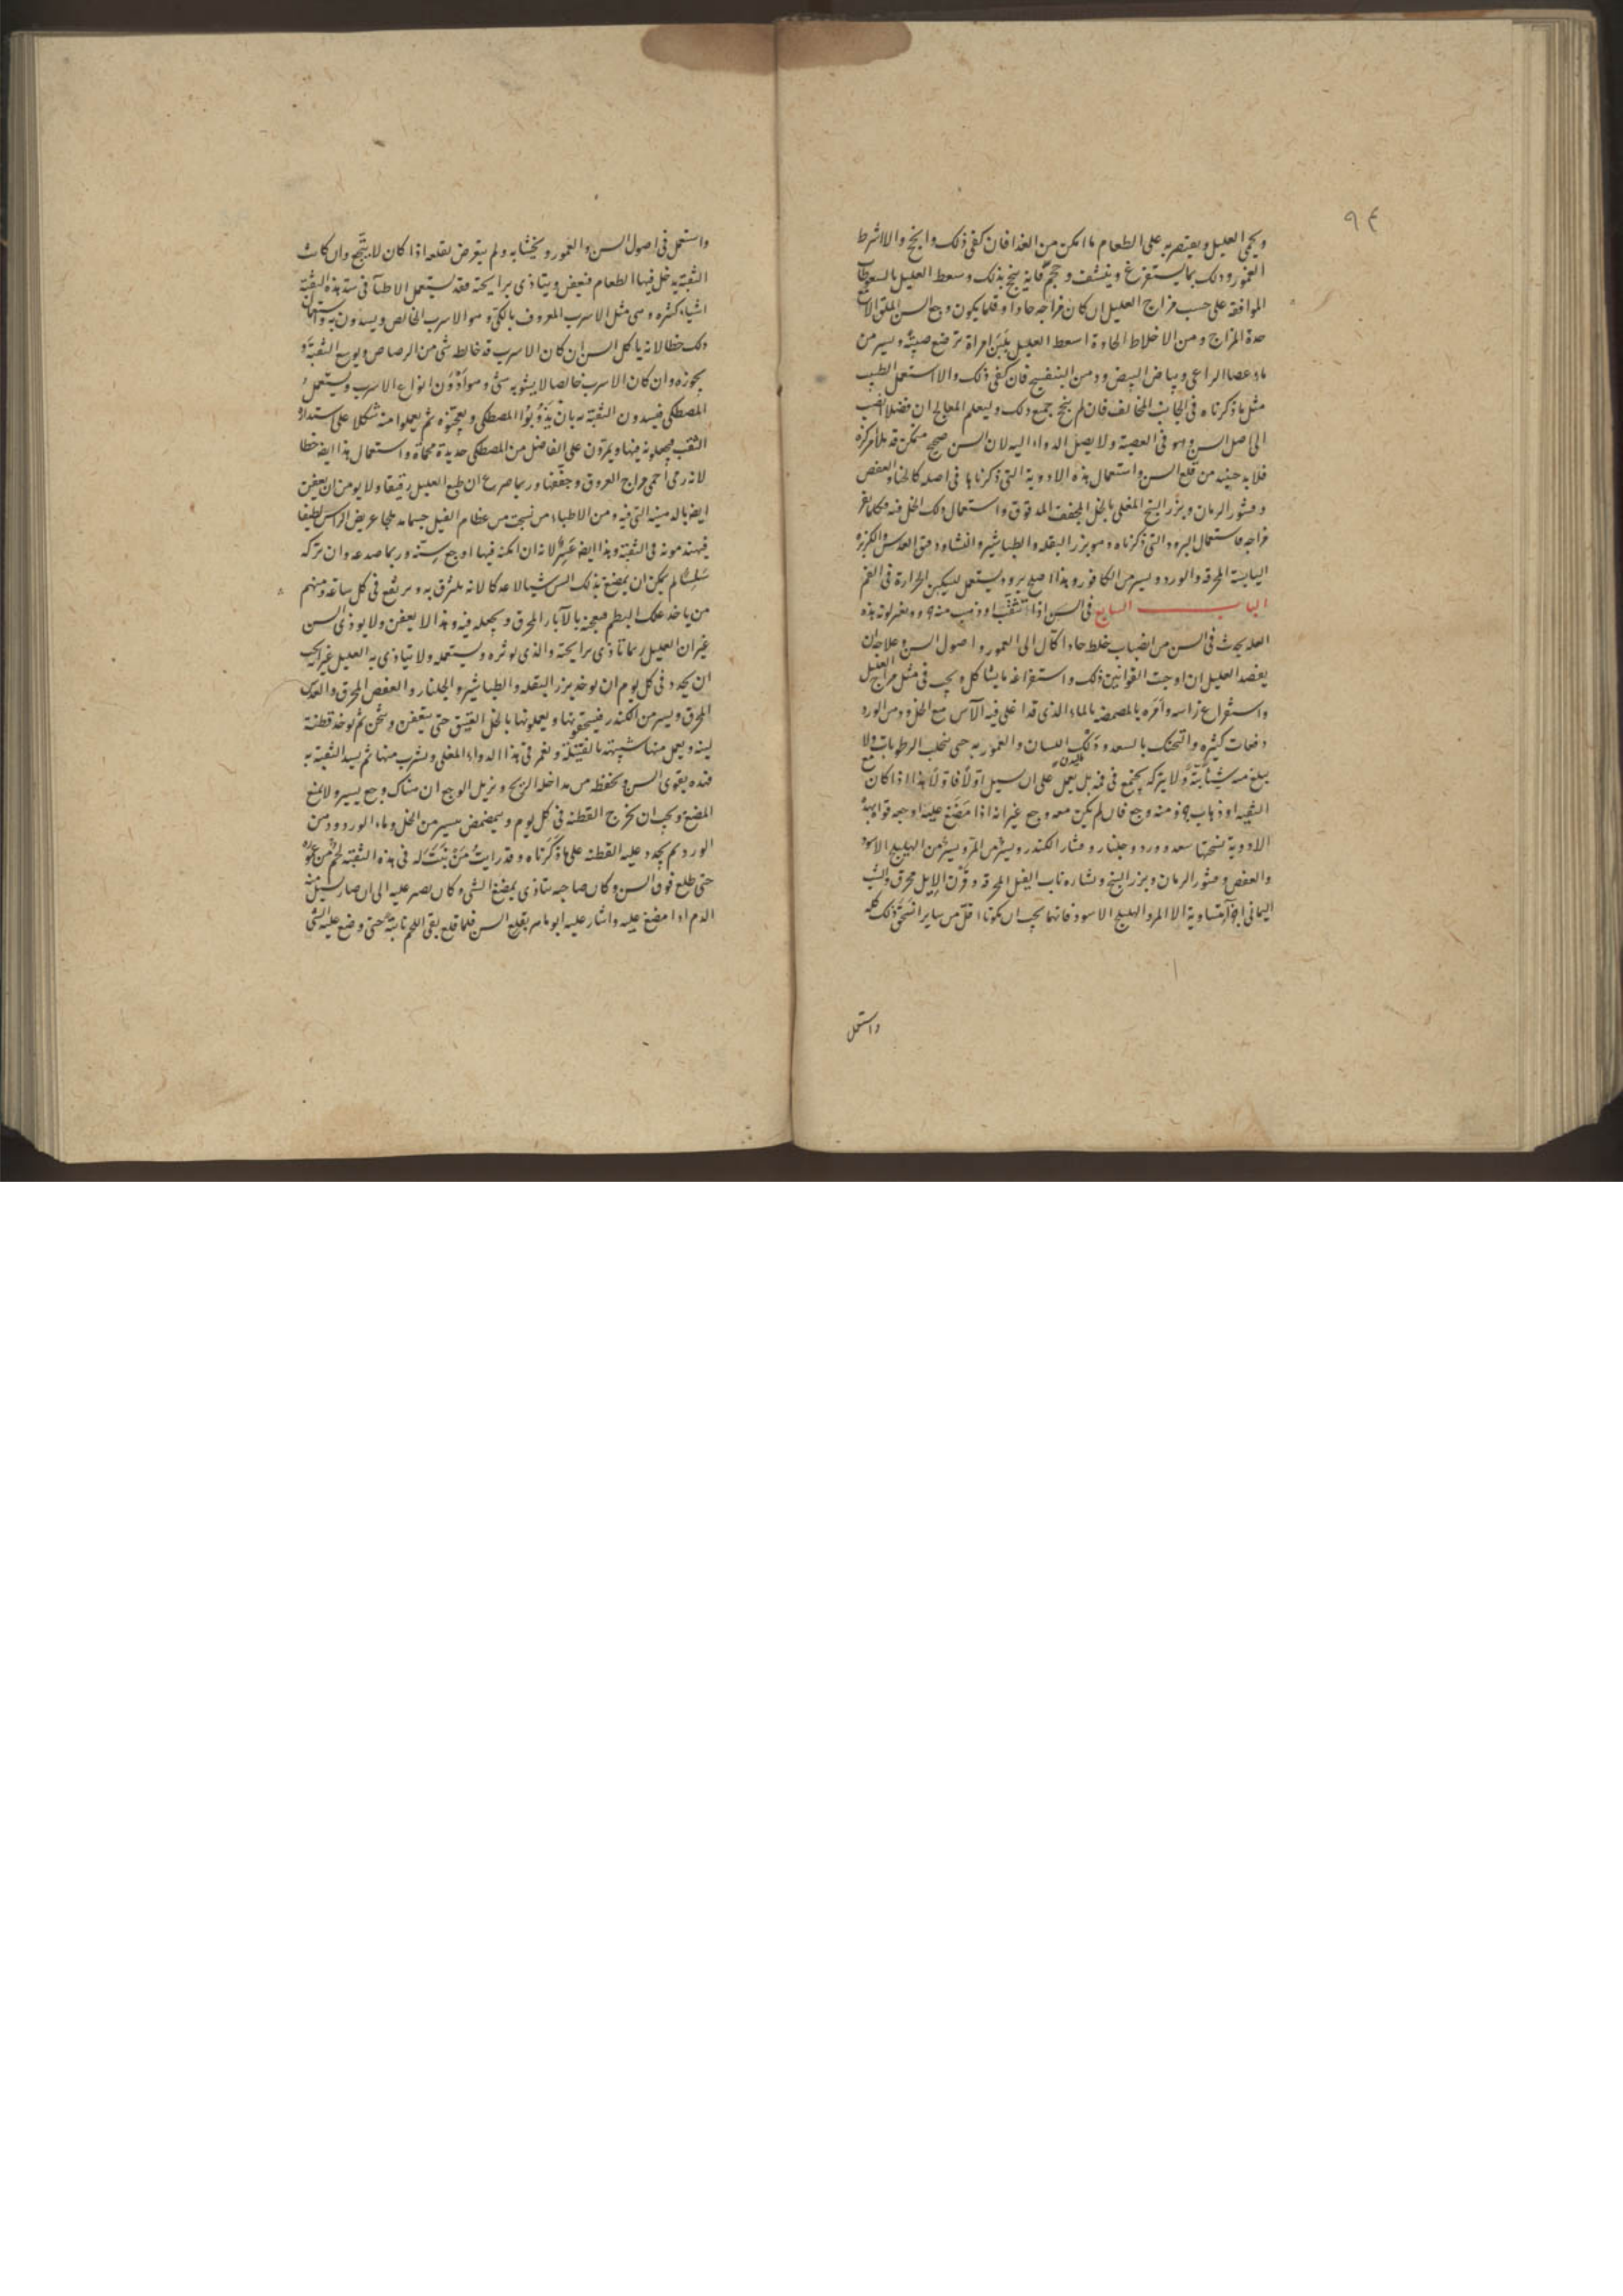 ٩٤
ويحمى العليل ويقتصر به على الطعام ما امكن من الغذا فان كفى ذلك وانجح والا شرط
العمور ودلك بما يستفرغ وينشف وحجم فانه ينجح بذلك وسعط العليل بالسعوطات
الموافقة على حسب مزاج العليل ان كان مزاجه حادا وقلما يكون وجع السن الا مع
حدة المزاج ومن الاخلاط الحادة اسعط العليل بلبن امراة ترضع صبية ويسير من
ماء عصا الراعى وبياض البيض ودهن البنفسج فان كفى ذلك والا استعمل الطبيب
مثل ما ذكرناه فى الجانب المخالف فان لم ينجح جميع ذلك وليعلم المعالج ان فضلا انصب
الى اصل السن وهو فى العصبة ولا يصل الدواء اليه لان السن صحيح متمكن قد ملأ مركزه
فلا بد حينئذ من قلع السن واستعمال هذه الادوية التى ذكرناها فى اصله كالخل والعفص
وقشور الرمان وبزر البنج المغلى بالخل المجفف المدقوق واستعمال ذلك الخل فيه فكلما تغير
مزاجه فاستعمال البرود التى ذكرناه وهو بزر البقله والطباشير والنشا ودقيق العدس والكزبرة
اليابسة المحرقة والورد ويسير من الكافور وهذا اصلح برود يستعمل لتسكين الحرارة فى الفم
الباب السابع فى السن اذا تثقب او ذهب منه جزء وتغير لونه هذه
العله يحدث فى السن من انصباب خلط حاد اكال الى العمور واصول السن وعلاجه ان
يفصد العليل ان اوجبت القوانين ذلك واستفراغه بما يشاكل ويجب فى مثل مزاج العليل
واستفراغ راسه وامره بالمضمضة بالماء الذى قد اغلى فيه الآس مع الخل ودهن الورد
دفعات كثيرة والتحنك بالسعد ودلك اللسان والعمور به حتى ينحلب الرطوبات ولا
يبلع منه شيئا بتة ولا يتركه يجتمع فى فمه بل يعمل على ان يسيل اولا فاولا هذا اذا كان مع
الثقبه او ذهاب جزء منه وجع فان لم يكن معه وجع غير انه اذا مضغ عليه اوجعه قواه بهذه
الادوية نسختها سعد وورد وجلنار وقشار الكندر ويسير من المر ويسير من الهليلج الاسود
والعفص وقشور الرمان وبزر البنج ونشاره ناب الفيل المحرقه وقرن الايل محرق والشب
اليمانى اجزآ متساوية الا المر والهليلج الاسود فانهما يجب ان يكونا اقل من ساير انسحق ذلك كله
واستعمل
واستعمل فى اصول السن والعمور ويحشا به ولم يتعرض لقلعه اذا كان لا يتجع وان كانت
الثقبة يدخل فيها الطعام فيعفن ويتاذى برايحته فقد يستعمل الاطبآ فى سد هذه الثقبة
اشياء كثيره وهى مثل الاسرب المعروف بالكلى وهو الاسرب الخالص ويسدون به واستعمال
ذلك خطا لانه ياكل السن ان كان الاسرب قد خالطه شئ من الرصاص ويوسع الثقبة و
يجوزه وان كان الاسرب خالصا لا يشوبه شئ وهو أدون انواع الاسرب ويستعمل
المصطكى فيسدون الثقبة به بان يذوبوا المصطكى ويعجنوه ثم يعملوا منه شكلا على استدارة
الثقب فيجعلونه فيها ويمرون على الفاضل من المصطكى حديدة محماة واستعمال هذا ايضا خطا
لانه ربما احمى مزاج العروق وجففها وربما صرع ان طبع العليل رقيقا ولا يومن ان يعفن
ايضا بالدهنية التى فيه ومن الاطباء من نحت من عظام الفيل جسما مدملجا عريض الراس لطيفا
فيهندمونه فى الثقبة وهذا ايضا عسر لانه ان امكنه فيها اوجع سنه وربما صدعه وان تركه
سلسا لم يمكن ان يمضغ بذلك السن شيا لا علكا لانه يلتزق به ويرتفع فى كل ساعة ومنهم
من ياخذ علك البطم فيعجنه بالآبار المحرق ويجعله فيه وهذا لا يعفن ولا يوذى السن
غير ان العليل ربما تاذى برايحته والذى نوثره ونستعمله ولا يتاذى به العليل غير انه يجب
ان يجدد فى كل يوم ان يوخذ بزر البقله والطباشير والجلنار والعفص المحرق والعدس
المحرق ويسير من الكندر فيسحقونها ويعملونها بالخل العتيق حتى يتعفن ويثخن ثم يوخذ قطنة
لينه ويعمل منها شبيهة بالفتيلة وتغمر فى هذا الدواء المغلى ويشرب منها ثم يسد الثقبة به
فهذه يقوى السن ويحفظه من مداخلة الريح ويزيل الوجع ان هناك وجع يسير ولا يمنع
المضغ ويجب ان تخرج القطنه فى كل يوم ويتمضمض بيسير من الخل وماء الورد ودهن
الورد ثم يجدد عليه القطنه على ما ذكرناه وقد رايت من نبت له فى هذه الثقبة لحم من عموره
حتى طلع فوق السن وكان صاحبه يتاذى بمضغ الشى وكان يصبر عليه الى ان صار يسيل منه
الدم اذا مضغ عليه واشار عليه ابو ماهر بقلع السن فلما قلع بقى اللحم نابتة حتى وضع عليه الشى